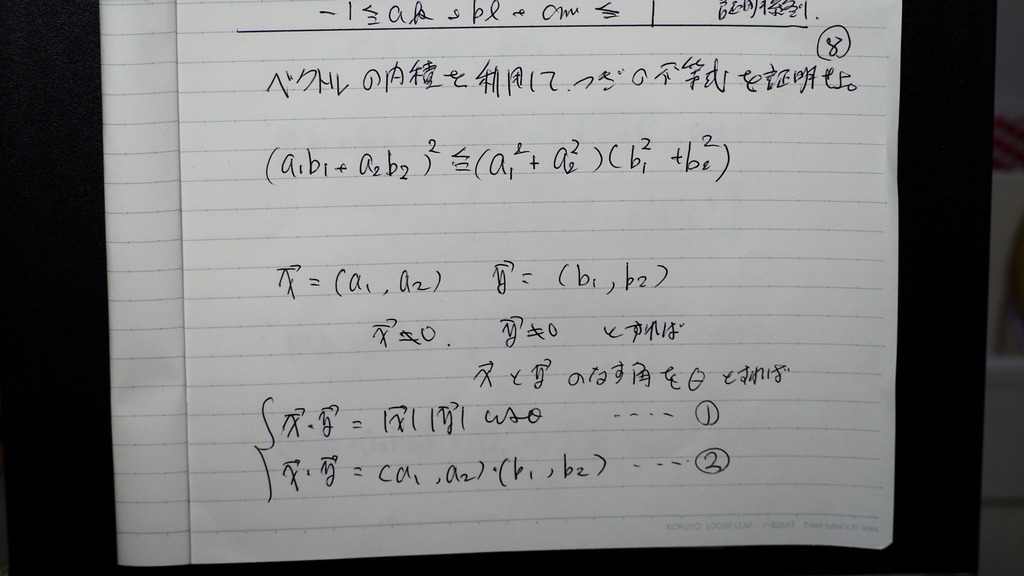 -1 ≦ ak + bl + cm ≦ 1
⑧
ベクトルの内積を利用して、つぎの不等式を証明せよ。
(a₁b₁ + a₂b₂)² ≦ (a₁² + a₂²)(b₁² + b₂²)
x⃗ = (a₁, a₂) y⃗ = (b₁, b₂)
x⃗ ≠ 0. y⃗ ≠ 0 とすれば
x⃗ と y⃗ のなす角を θ とすれば
x⃗・y⃗ = |x⃗| |y⃗| cosθ ····· ①
x⃗・y⃗ = (a₁, a₂)・(b₁, b₂) ····· ②
KOKUYO LOOSE-LEAF